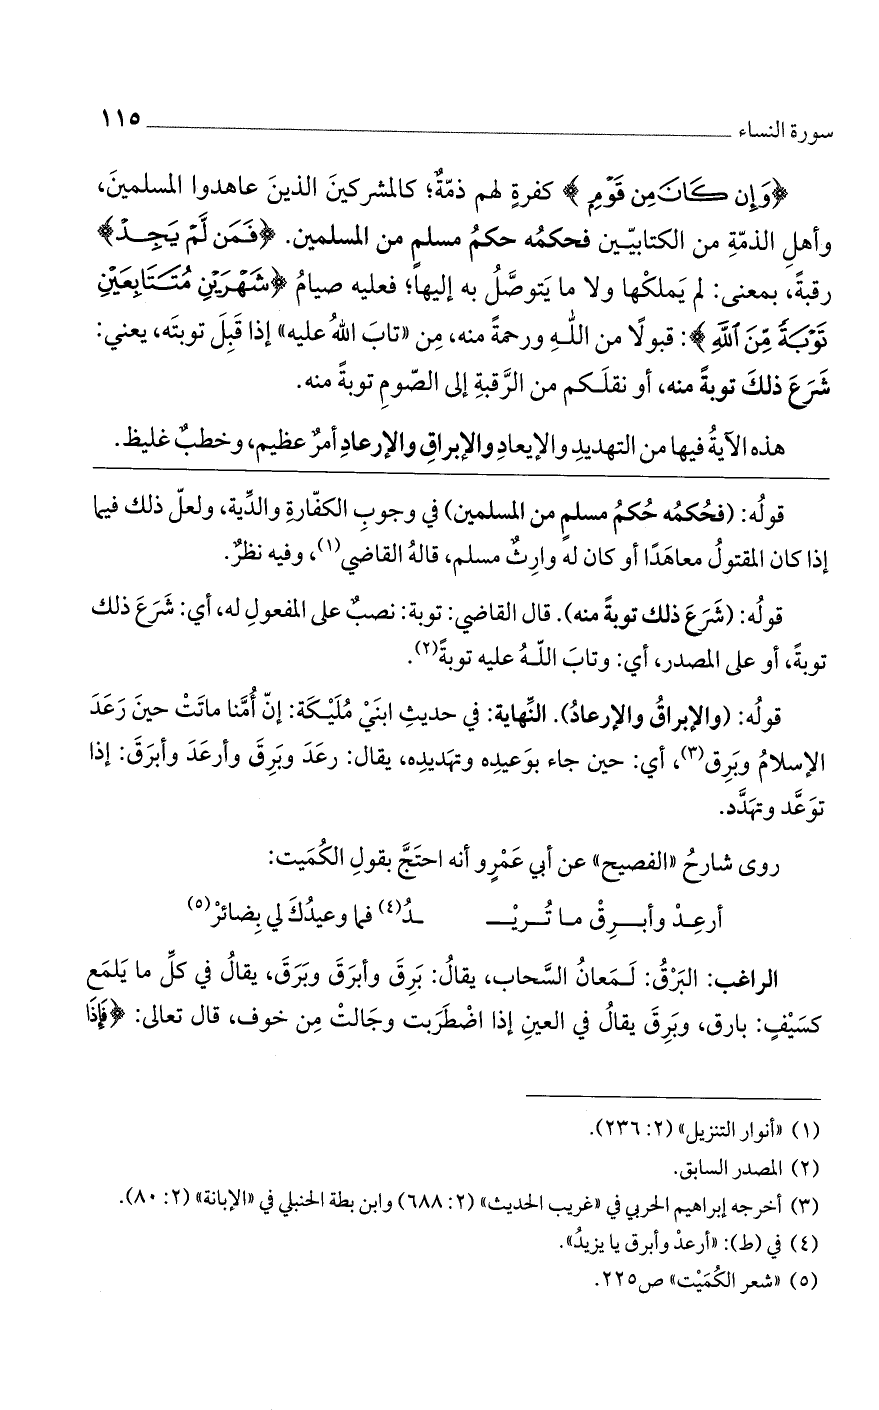 سورة النساء ١١٥
﴿وَإِن كَانَ مِن قَوْمٍ﴾ كفرةٍ لهم ذمّةٌ؛ كالمشركينَ الذينَ عاهدوا المسلمينَ،
وأهلِ الذمّةِ من الكتابيّين فحكمُه حكمُ مسلمٍ من المسلمين. ﴿فَمَن لَّمْ يَجِدْ﴾
رقبةً، بمعنى: لم يَملكْها ولا ما يَتوصَّلُ به إليها؛ فعليه صيامُ ﴿شَهْرَيْنِ مُتَتَابِعَيْنِ
تَوْبَةً مِّنَ اللَّهِ﴾: قبولًا من اللهِ ورحمةً منه، مِن «تابَ اللهُ عليه» إذا قَبِلَ توبتَه، يعني:
شَرَعَ ذلكَ توبةً منه، أو نقلَكم من الرَّقبةِ إلى الصّومِ توبةً منه.
هذه الآيةُ فيها من التهديدِ والإيعادِ والإبراقِ والإرعادِ أمرٌ عظيم، وخطبٌ غليظ.
قولُه: (فحُكمُه حُكمُ مسلمٍ من المسلمين) في وجوبِ الكفّارةِ والدِّية، ولعلّ ذلك فيما
إذا كان المقتولُ معاهَدًا أو كان له وارِثٌ مسلم، قالهُ القاضي(١)، وفيه نظرٌ.
قولُه: (شَرَعَ ذلك توبةً منه). قال القاضي: توبة: نصبٌ على المفعولِ له، أي: شَرَعَ ذلك
توبةً، أو على المصدر، أي: وتابَ اللّهُ عليه توبةً(٢).
قولُه: (والإبراقُ والإرعادُ). النِّهاية: في حديثِ ابنَيْ مُلَيْكَة: إنّ أُمَّنا ماتَتْ حينَ رَعَدَ
الإسلامُ وبَرِق(٣)، أي: حين جاء بوَعيدِه وتهديدِه، يقال: رعَدَ وبَرِقَ وأرعَدَ وأبرَقَ: إذا
توَعَّد وتهَدَّد.
روى شارحُ «الفصيح» عن أبي عَمْرٍو أنه احتَجَّ بقولِ الكُمَيت:
أرعِدْ وأبـرِقْ ما تُريْـ ـدُ(٤) فما وعيدُكَ لي بِضائرْ(٥)
الراغب: البَرْقُ: لَمَعانُ السَّحاب، يقالُ: بَرِقَ وأبرَقَ وبَرَقَ، يقالُ في كلِّ ما يَلمَع
كسَيْفٍ: بارق، وبَرِقَ يقالُ في العينِ إذا اضْطَرَبت وجَالتْ مِن خوف، قال تعالى: ﴿فَإِذَا
(١) «أنوار التنزيل» (٢: ٢٣٦).
(٢) المصدر السابق.
(٣) أخرجه إبراهيم الحربي في «غريب الحديث» (٢: ٦٨٨) وابن بطة الحنبلي في «الإبانة» (٢: ٨٠).
(٤) في (ط): «أرعدْ وأبرق يا يزيدُ».
(٥) «شعر الكُمَيْت» ص٢٢٥.